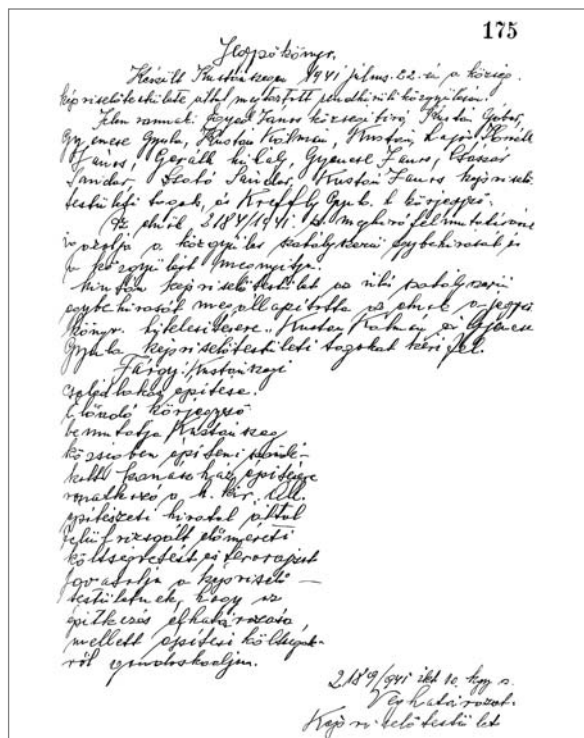 175
Jegyzőkönyv.
Készült Kustánszegen 1941 július 22-én a község
képviselőtestülete által megtartott rendkívüli közgyűlésen.
Jelen vannak: Egyed János községi bíró, Kustán Gábor,
Gyenese Gyula, Kustán Kálmán, Kustán Lajos, Horváth
János, Gerált Mihály, Gyenese János, Császár
Sándor, Szabó Sándor, Kustán János képviselő-
testületi tagok, és Gyula h. körjegyző.
Az elnök 2184/1941. sz. meghívó felmutatásával
igazolja a közgyűlés szabályszerű egybehívását és
a közgyűlést megnyitja.
Miután képviselőtestület az ülés szabályszerű
egybehívását megállapította az elnök a jegyző
könyv hitelesítésére Kustán Kálmán és Gyenese
Gyula képviselőtestületi tagokat kéri fel.
Tárgy: Kustánszegi
családi lakás építése.
Előadó körjegyző
bemutatja Kustánszeg
községben építeni
kanászház építésére
vonatkozó a m. kir. áll.
építészeti hivatal által
felülvizsgált előméreti
költségvetést, és tervrajzot
javasolja a képviselő
testületnek, hogy az
építkezés elhatározása
mellett építési költségek-
ről gondoskodjon.
2189/941 ikt. 10. kgy. sz.
Véghatározat.
Képviselőtestület